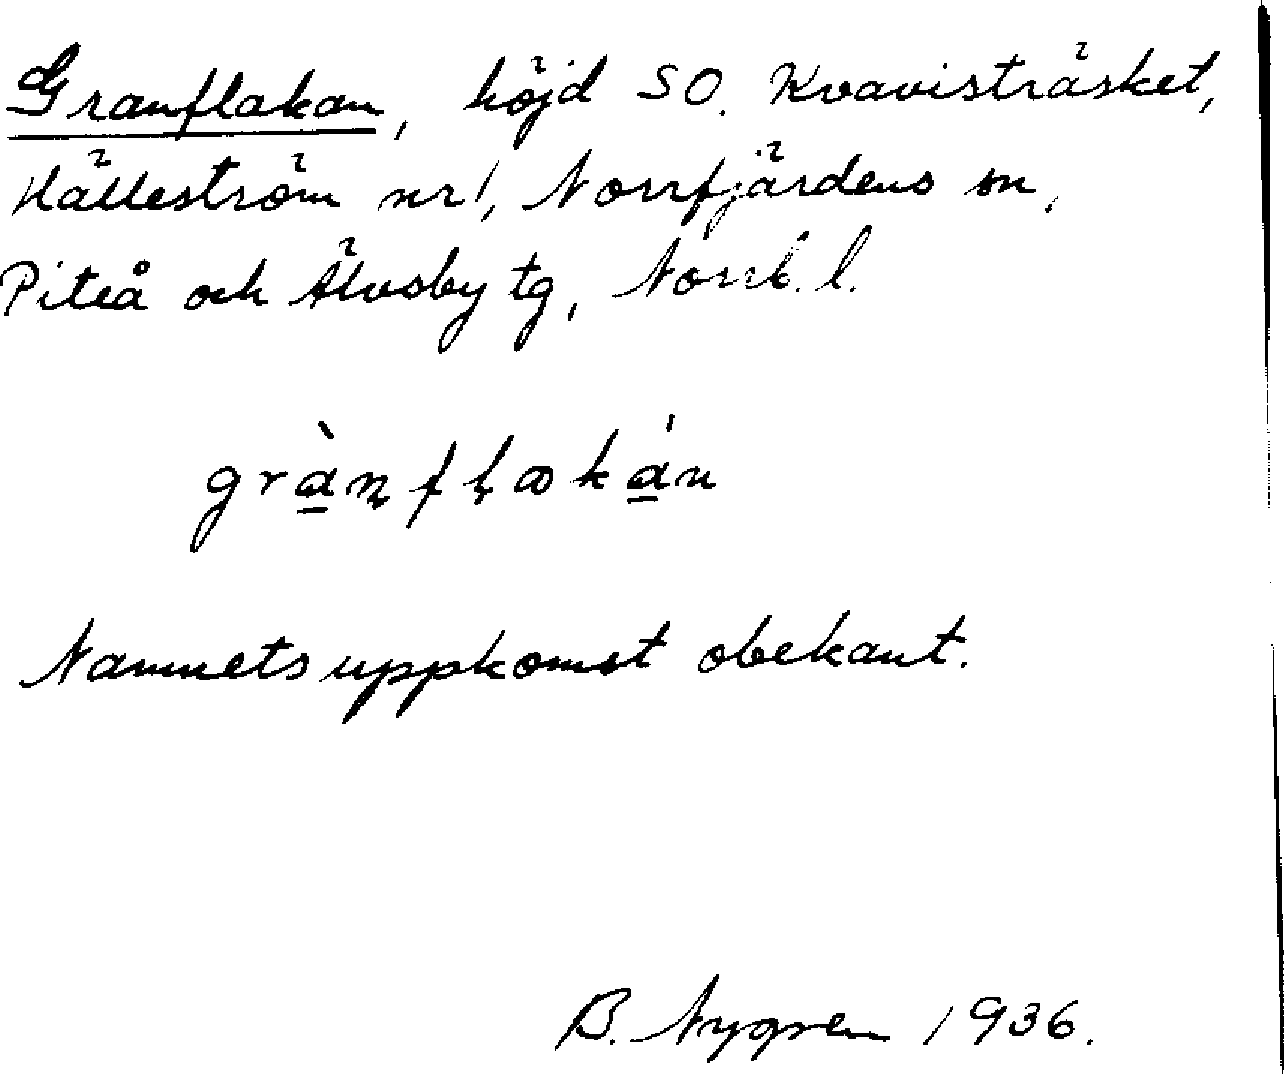 Granflakan, höjd SO. Kvavisträsket,
Hälleström nr 1, Norrfjärdens sn,
Piteå och Älvsby tg, Norrb. l.
grànflakán
Namnets uppkomst obekant.
B. Nygren 1936.